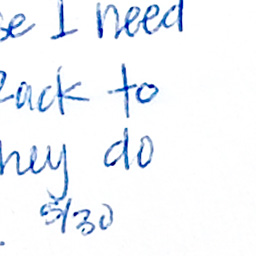 se I need
back to
hey do
5/30